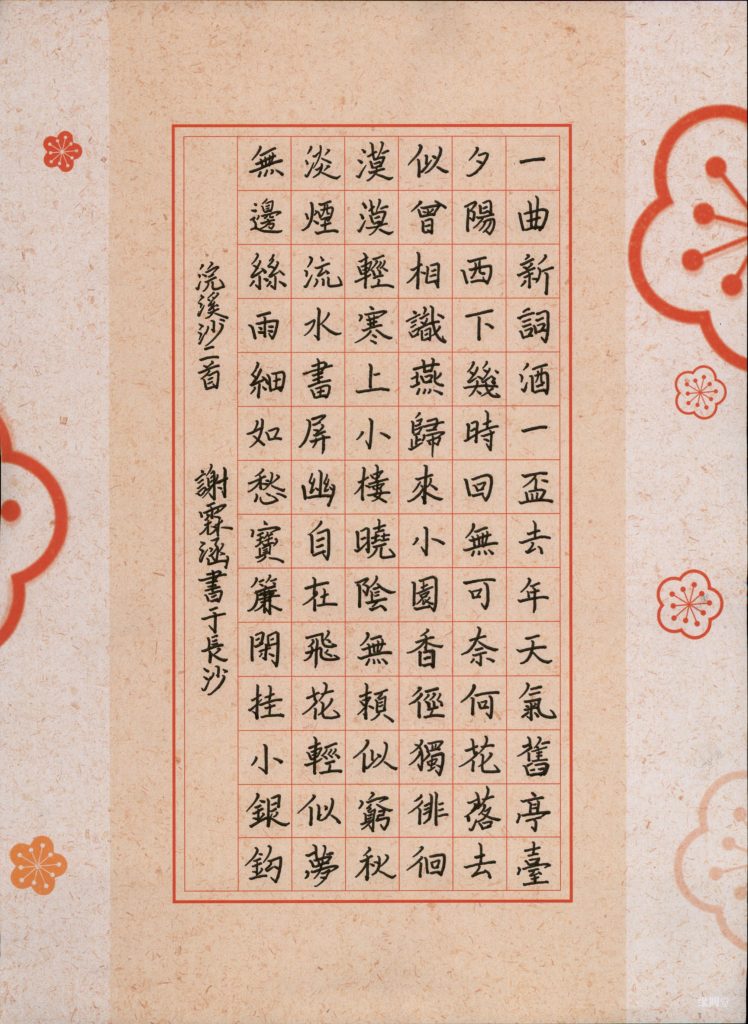 一曲新詞酒一盃去年天氣舊亭臺
夕陽西下幾時回無可奈何花落去
似曾相識燕歸來小園香徑獨徘徊
漠漠輕寒上小樓曉陰無賴似窮秋
淡煙流水畫屏幽自在飛花輕似夢
無邊絲雨細如愁寶簾閑挂小銀鈎
浣溪沙二首
謝霖涵書于長沙